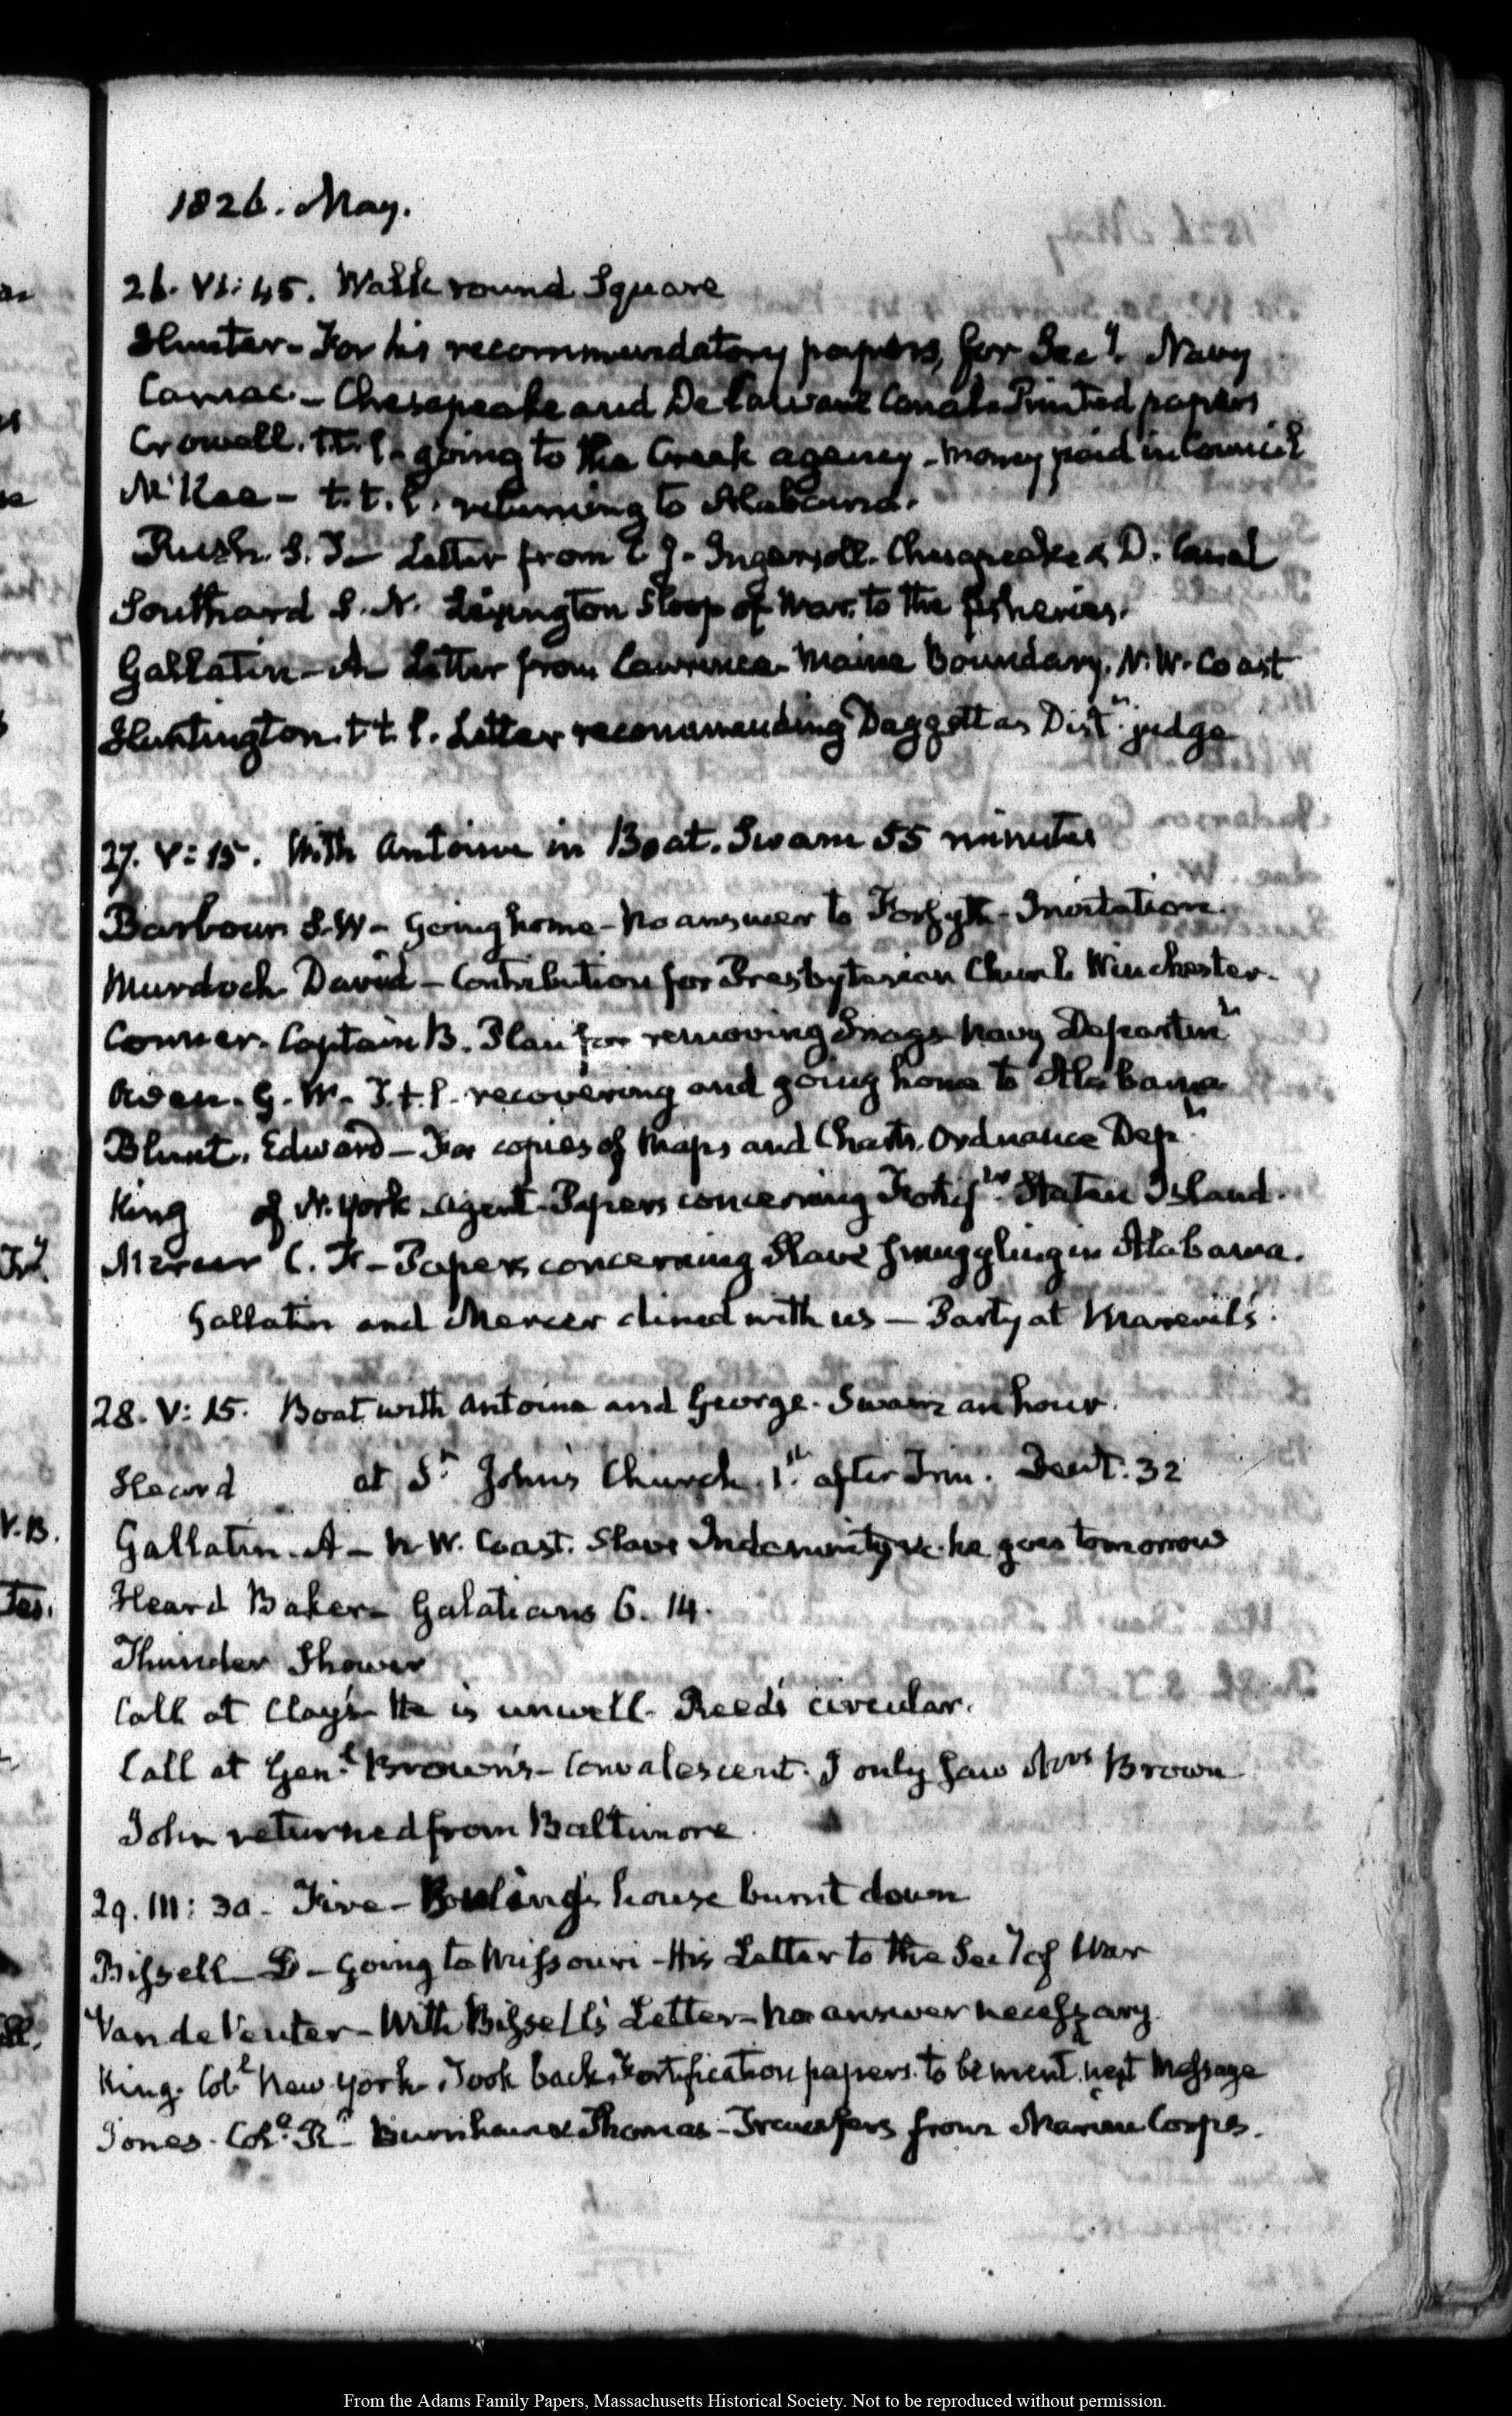 1826. May.
26. VI: 45. Walk round Square
Hunter - For his recommendatory papers, for Secy. Navy
Camac. - Chesapeake and Delaware Canal. Printed papers
Crowell. t.t.l. going to the Creek agency - money paid in Council
McKee - t.t.l. returning to Alabama.
Rush. S.T. - Letter from C J. Ingersoll. Chesapeake & D. Canal
Southard S.N. Lexington Sloop of War. to the fisheries.
Gallatin - A Letter from Lawrence - Maine Boundary. N.W. Coast
Huntington. t t. l. Letter recommending Daggett as Distt. judge
27. V: 15. With Antoine in Boat. Swam 55 minutes
Barbour S.W - Going home - No answer to Forsyth - Invitation.
Murdoch David - Contribution for Presbyterian Church Winchester.
Conner. Captain B. Plan for removing Snags Navy Departmt
Owen. G. W. T.t.l. recovering and going home to Alabama
Blunt. Edward - For copies of Maps and Charts. Ordnance Dept.
King of N. York. agent. Papers concerning Fortifns Staten Island.
Mercer C. F. - Papers concerning Slave smuggling in Alabama.
Gallatin and Mercer dined with us - Party at Mareuil's.
28. V: 15. Boat with Antoine and George. Swam an hour.
Heard at St. John's Church. 1st. after Trin. Deut. 32
Gallatin. A - N.W. Coast. Slave Indemnity &c. he goes tomorrow
Heard Baker - Galatians 6. 14.
Thunder Shower
Call at Clay's - He is unwell. Reed's circular.
Call at Genl. Brown's - Convalescent. I only saw Mrs Brown
John returned from Baltimore.
29. III: 30. Fire - house burnt down
Bissell - D - Going to Missouri - His Letter to the Secy of War
Van de Venter - With Bissell's Letter - no answer necessary.
King. Coll. New York. Took back Fortification papers. to be ment. next Message
Jones. Coll. R. Burnham & Thomas - Transfers from Marine Corps.
From the Adams Family Papers, Massachusetts Historical Society. Not to be reproduced without permission.